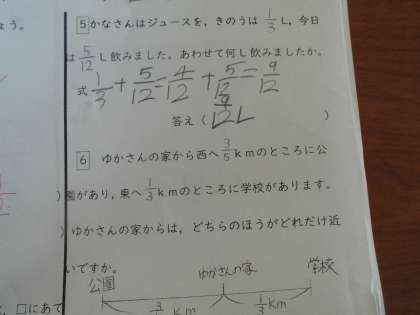 ょう。
5 かなさんはジュースを，きのうは 1/3 L，今日
は 5/12 L 飲みました。あわせて何L飲みましたか。
式 1/3 + 5/12 = 4/12 + 5/12 = 9/12
答え（ 9/12 L ）
6 ゆかさんの家から西へ 3/5 kmのところに公
園があり，東へ 1/3 kmのところに学校があります。
ゆかさんの家からは，どちらのほうがどれだけ近
いですか。
公園 ゆかさんの家 学校
3/ km 1/3 Km
、□にあて